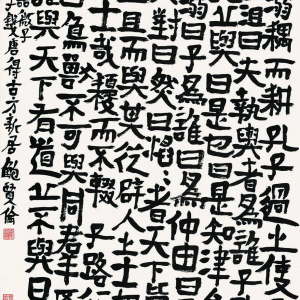 溺耦而耕孔子過之使
沮曰夫執輿者為誰子
丘與曰是也曰是知津
溺曰子為誰曰為仲由
對曰然曰慆〻者天下皆
之且而與其從辟人之士
士哉耰而不輟子路
曰鳥獸不可與同群吾
誰與天下有道丘不與
語微子
得古方新居鮑賢倫